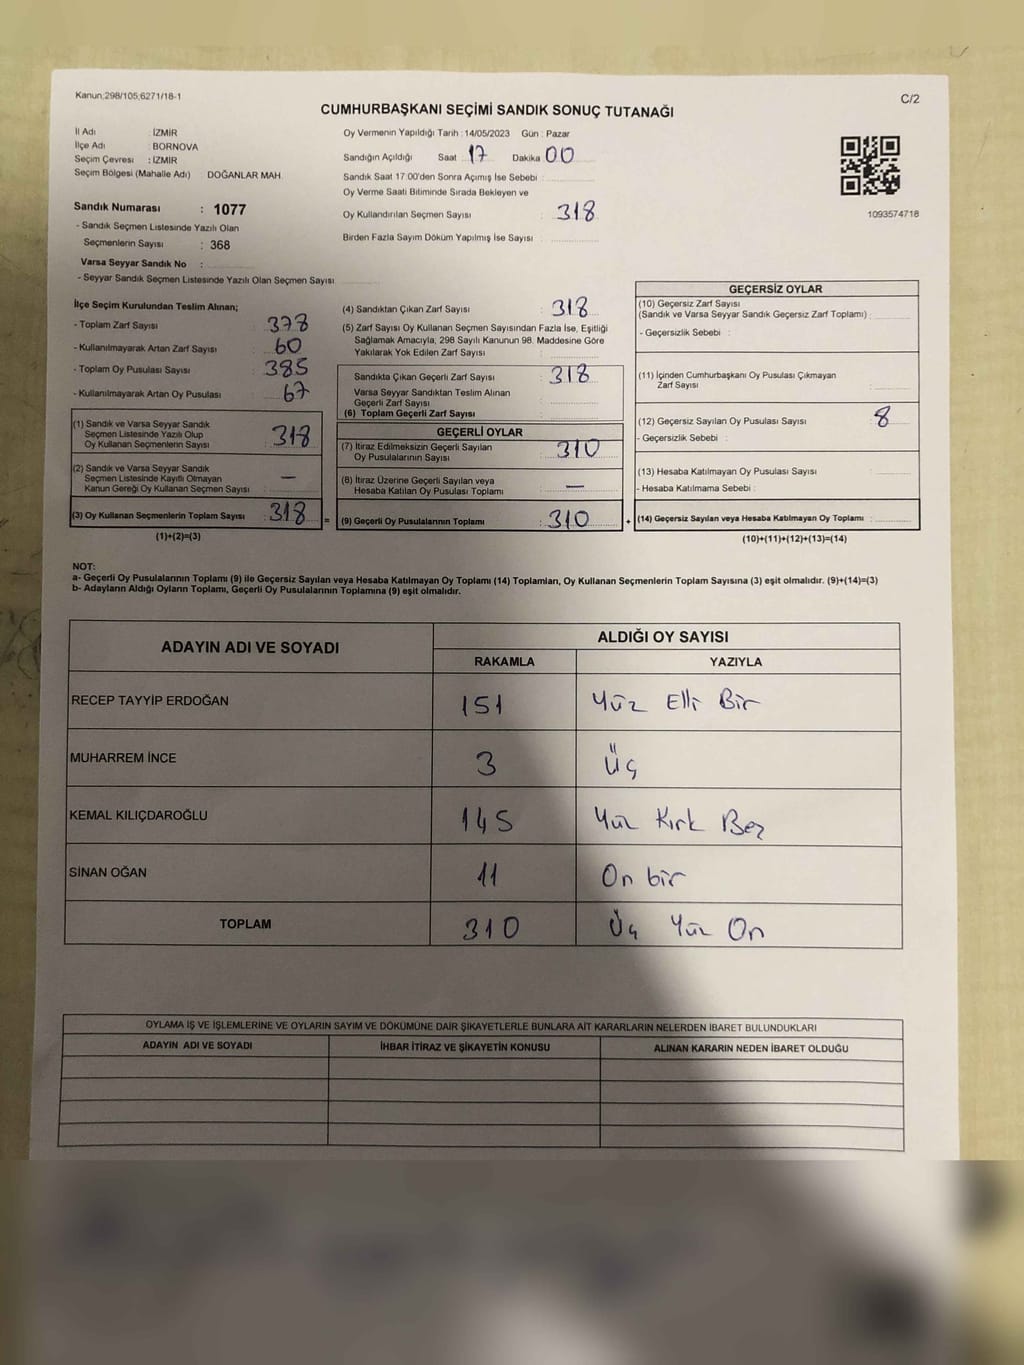 Kanun;298/105;6271/18-1
C/2
CUMHURBAŞKANI SEÇİMİ SANDIK SONUÇ TUTANAĞI
İl Adı : İZMİR
İlçe Adı : BORNOVA
Seçim Çevresi : İZMİR
Seçim Bölgesi (Mahalle Adı) : DOĞANLAR MAH.
Sandık Numarası : 1077
- Sandık Seçmen Listesinde Yazılı Olan
Seçmenlerin Sayısı : 368
Varsa Seyyar Sandık No :
- Seyyar Sandık Seçmen Listesinde Yazılı Olan Seçmen Sayısı
Oy Vermenin Yapıldığı Tarih : 14/05/2023 Gün : Pazar
Sandığın Açıldığı Saat 17 Dakika 00
Sandık Saat 17:00'den Sonra Açımış İse Sebebi :
Oy Verme Saati Bitiminde Sırada Bekleyen ve
Oy Kullandırılan Seçmen Sayısı : 318
Birden Fazla Sayım Döküm Yapılmış İse Sayısı :
1093574718
İlçe Seçim Kurulundan Teslim Alınan;
- Toplam Zarf Sayısı : 378
- Kullanılmayarak Artan Zarf Sayısı : 60
- Toplam Oy Pusulası Sayısı : 385
- Kullanılmayarak Artan Oy Pusulası : 67
(1) Sandık ve Varsa Seyyar Sandık
Seçmen Listesinde Yazılı Olup
Oy Kullanan Seçmenlerin Sayısı : 318
(2) Sandık ve Varsa Seyyar Sandık
Seçmen Listesinde Kayıtlı Olmayan
Kanun Gereği Oy Kullanan Seçmen Sayısı : —
(3) Oy Kullanan Seçmenlerin Toplam Sayısı : 318 =
(1)+(2)=(3)
(4) Sandıktan Çıkan Zarf Sayısı : 318
(5) Zarf Sayısı Oy Kullanan Seçmen Sayısından Fazla İse, Eşitliği
Sağlamak Amacıyla, 298 Sayılı Kanunun 98. Maddesine Göre
Yakılarak Yok Edilen Zarf Sayısı :
Sandıkta Çıkan Geçerli Zarf Sayısı : 318
Varsa Seyyar Sandıktan Teslim Alınan
Geçerli Zarf Sayısı :
(6) Toplam Geçerli Zarf Sayısı :
GEÇERLİ OYLAR
(7) İtiraz Edilmeksizin Geçerli Sayılan
Oy Pusulalarının Sayısı : 310
(8) İtiraz Üzerine Geçerli Sayılan veya
Hesaba Katılan Oy Pusulası Toplamı : —
(9) Geçerli Oy Pusulalarının Toplamı : 310 +
GEÇERSİZ OYLAR
(10) Geçersiz Zarf Sayısı
(Sandık ve Varsa Seyyar Sandık Geçersiz Zarf Toplamı) :
- Geçersizlik Sebebi :
(11) İçinden Cumhurbaşkanı Oy Pusulası Çıkmayan
Zarf Sayısı :
(12) Geçersiz Sayılan Oy Pusulası Sayısı : 8
- Geçersizlik Sebebi :
(13) Hesaba Katılmayan Oy Pusulası Sayısı :
- Hesaba Katılmama Sebebi :
(14) Geçersiz Sayılan veya Hesaba Katılmayan Oy Toplamı :
(10)+(11)+(12)+(13)=(14)
NOT:
a- Geçerli Oy Pusulalarının Toplamı (9) ile Geçersiz Sayılan veya Hesaba Katılmayan Oy Toplamı (14) Toplamları, Oy Kullanan Seçmenlerin Toplam Sayısına (3) eşit olmalıdır. (9)+(14)=(3)
b- Adayların Aldığı Oyların Toplamı, Geçerli Oy Pusulalarının Toplamına (9) eşit olmalıdır.
ADAYIN ADI VE SOYADI
ALDIĞI OY SAYISI
RAKAMLA YAZIYLA
RECEP TAYYİP ERDOĞAN 151 Yüz Elli Bir
MUHARREM İNCE 3 Üç
KEMAL KILIÇDAROĞLU 145 Yüz Kırk Beş
SİNAN OĞAN 11 On bir
TOPLAM 310 Üç Yüz On
OYLAMA İŞ VE İŞLEMLERİNE VE OYLARIN SAYIM VE DÖKÜMÜNE DAİR ŞİKAYETLERLE BUNLARA AİT KARARLARIN NELERDEN İBARET BULUNDUKLARI
ADAYIN ADI VE SOYADI İHBAR İTİRAZ VE ŞİKAYETİN KONUSU ALINAN KARARIN NEDEN İBARET OLDUĞU